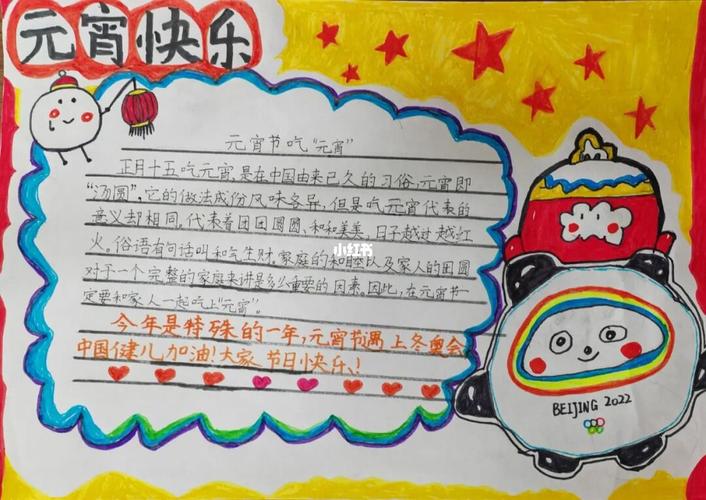 元宵快乐
元宵节吃“元宵”
正月十五吃元宵,是在中国由来已久的习俗,元宵即
“汤圆”,它的做法成份风味各异,但是吃元宵代表的
意义却相同。代表着团团圆圆、和和美美,日子越过越红
火。俗语有句话叫和气生财,家庭的和睦以及家人的团圆
对于一个完整的家庭来讲是多么重要的因素。因此,在元宵节一
定要和家人一起吃上“元宵”。
今年是特殊的一年,元宵节遇上冬奥会,
中国健儿加油!大家节日快乐!
小红书
BEIJING 2022